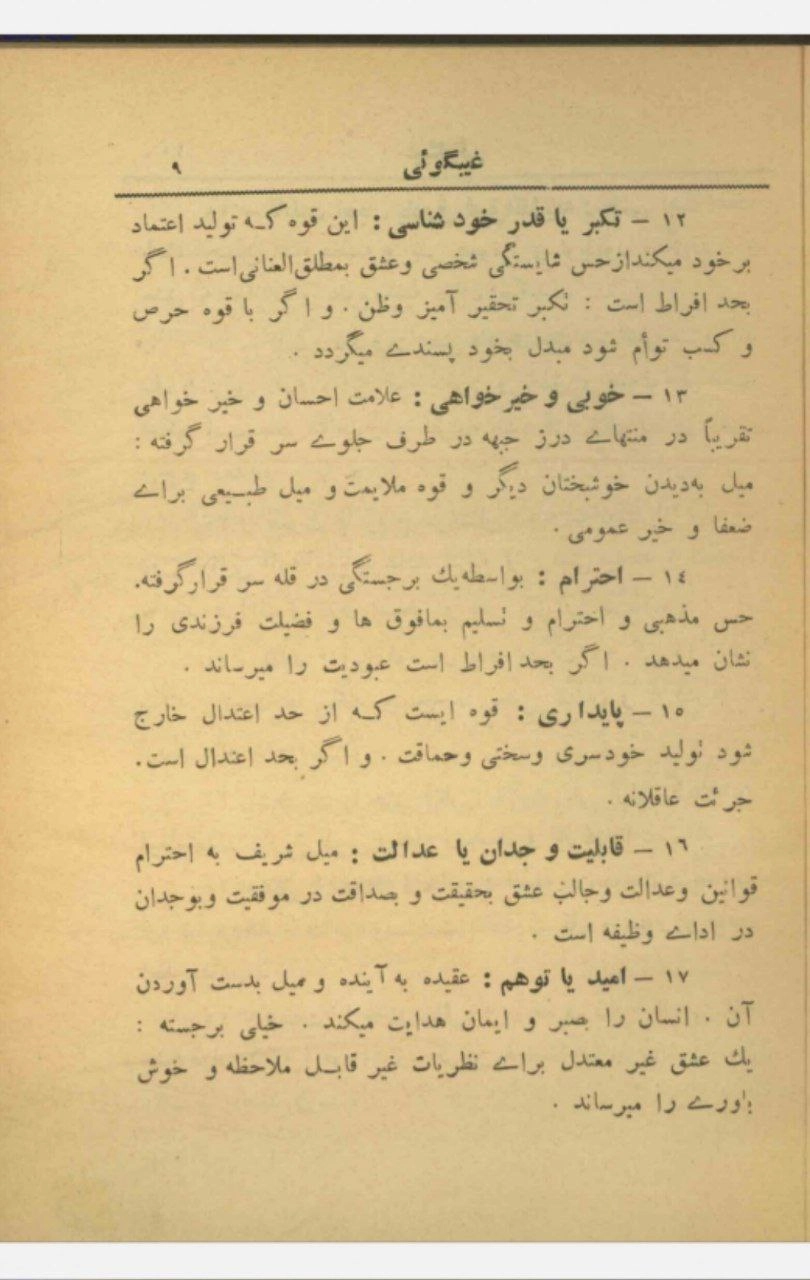 غیبگوئی ۹
۱۲ – تکبر یا قدر خود شناسی : این قوه که تولید اعتماد
برخود میکندازحس شایستگی شخصی وعشق بمطلق‌العنانی‌است . اگر
بحد افراط است : تکبر تحقیر آمیز وظن . و اگر با قوه حرص
و کسب توأم شود مبدل بخود پسندے میگردد .
۱۳ – خوبی و خیرخواهی : علامت احسان و خیر خواهی
تقریباً در منتهاے درز جبهه در طرف جلوے سر قرار گرفته :
میل به‌دیدن خوشبختان دیگر و قوه ملایمت و میل طبیعی براے
ضعفا و خیر عمومی .
۱٤ – احترام : بواسطه‌یك برجستگی در قله سر قرارگرفته.
حس مذهبی و احترام و تسلیم بمافوق ها و فضیلت فرزندی را
نشان میدهد . اگر بحد افراط است عبودیت را میرساند .
۱۵ – پایداری : قوه ایست که از حد اعتدال خارج
شود تولید خودسری وسختی وحماقت . و اگر بحد اعتدال است.
جرئت عاقلانه .
۱٦ – قابلیت و جدان یا عدالت : میل شریف به احترام
قوانین وعدالت وجالب عشق بحقیقت و بصداقت در موفقیت وبوجدان
در اداے وظیفه است .
۱۷ – امید یا توهم : عقیده به آینده و میل بدست آوردن
آن . انسان را بصبر و ایمان هدایت میکند . خیلی برجسته :
یك عشق غیر معتدل براے نظریات غیر قابل ملاحظه و خوش
باورے را میرساند .